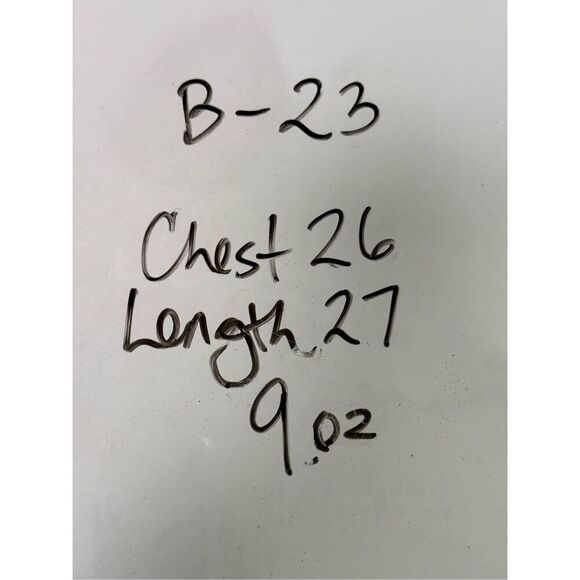 B-23
Chest 26
Length 27
9.oz